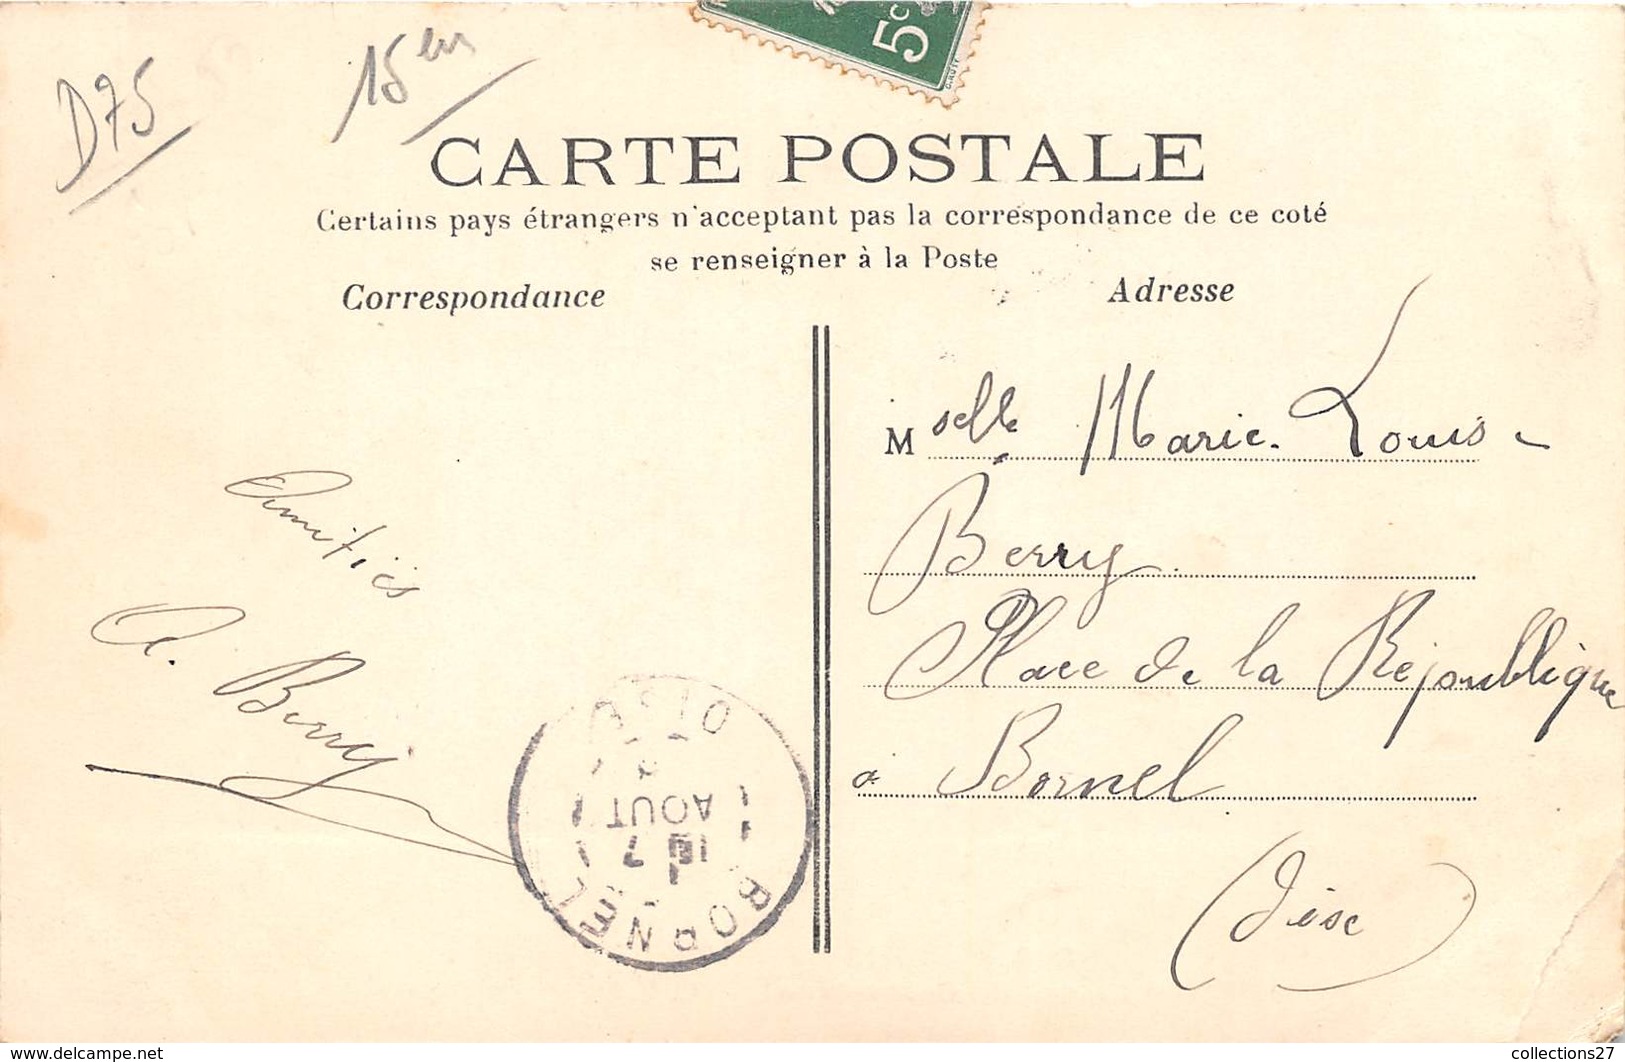 D75
15em
5c
CARTE POSTALE
Certains pays étrangers n'acceptant pas la correspondance de ce coté
se renseigner à la Poste
Correspondance
Adresse
Amitiés
A. Berry
Mselle Marie-Louise
Berry
Place de la République
à Bornel
(Oise)
BORNEL
7
AOUT
OISE
www.delcampe.net
collections27